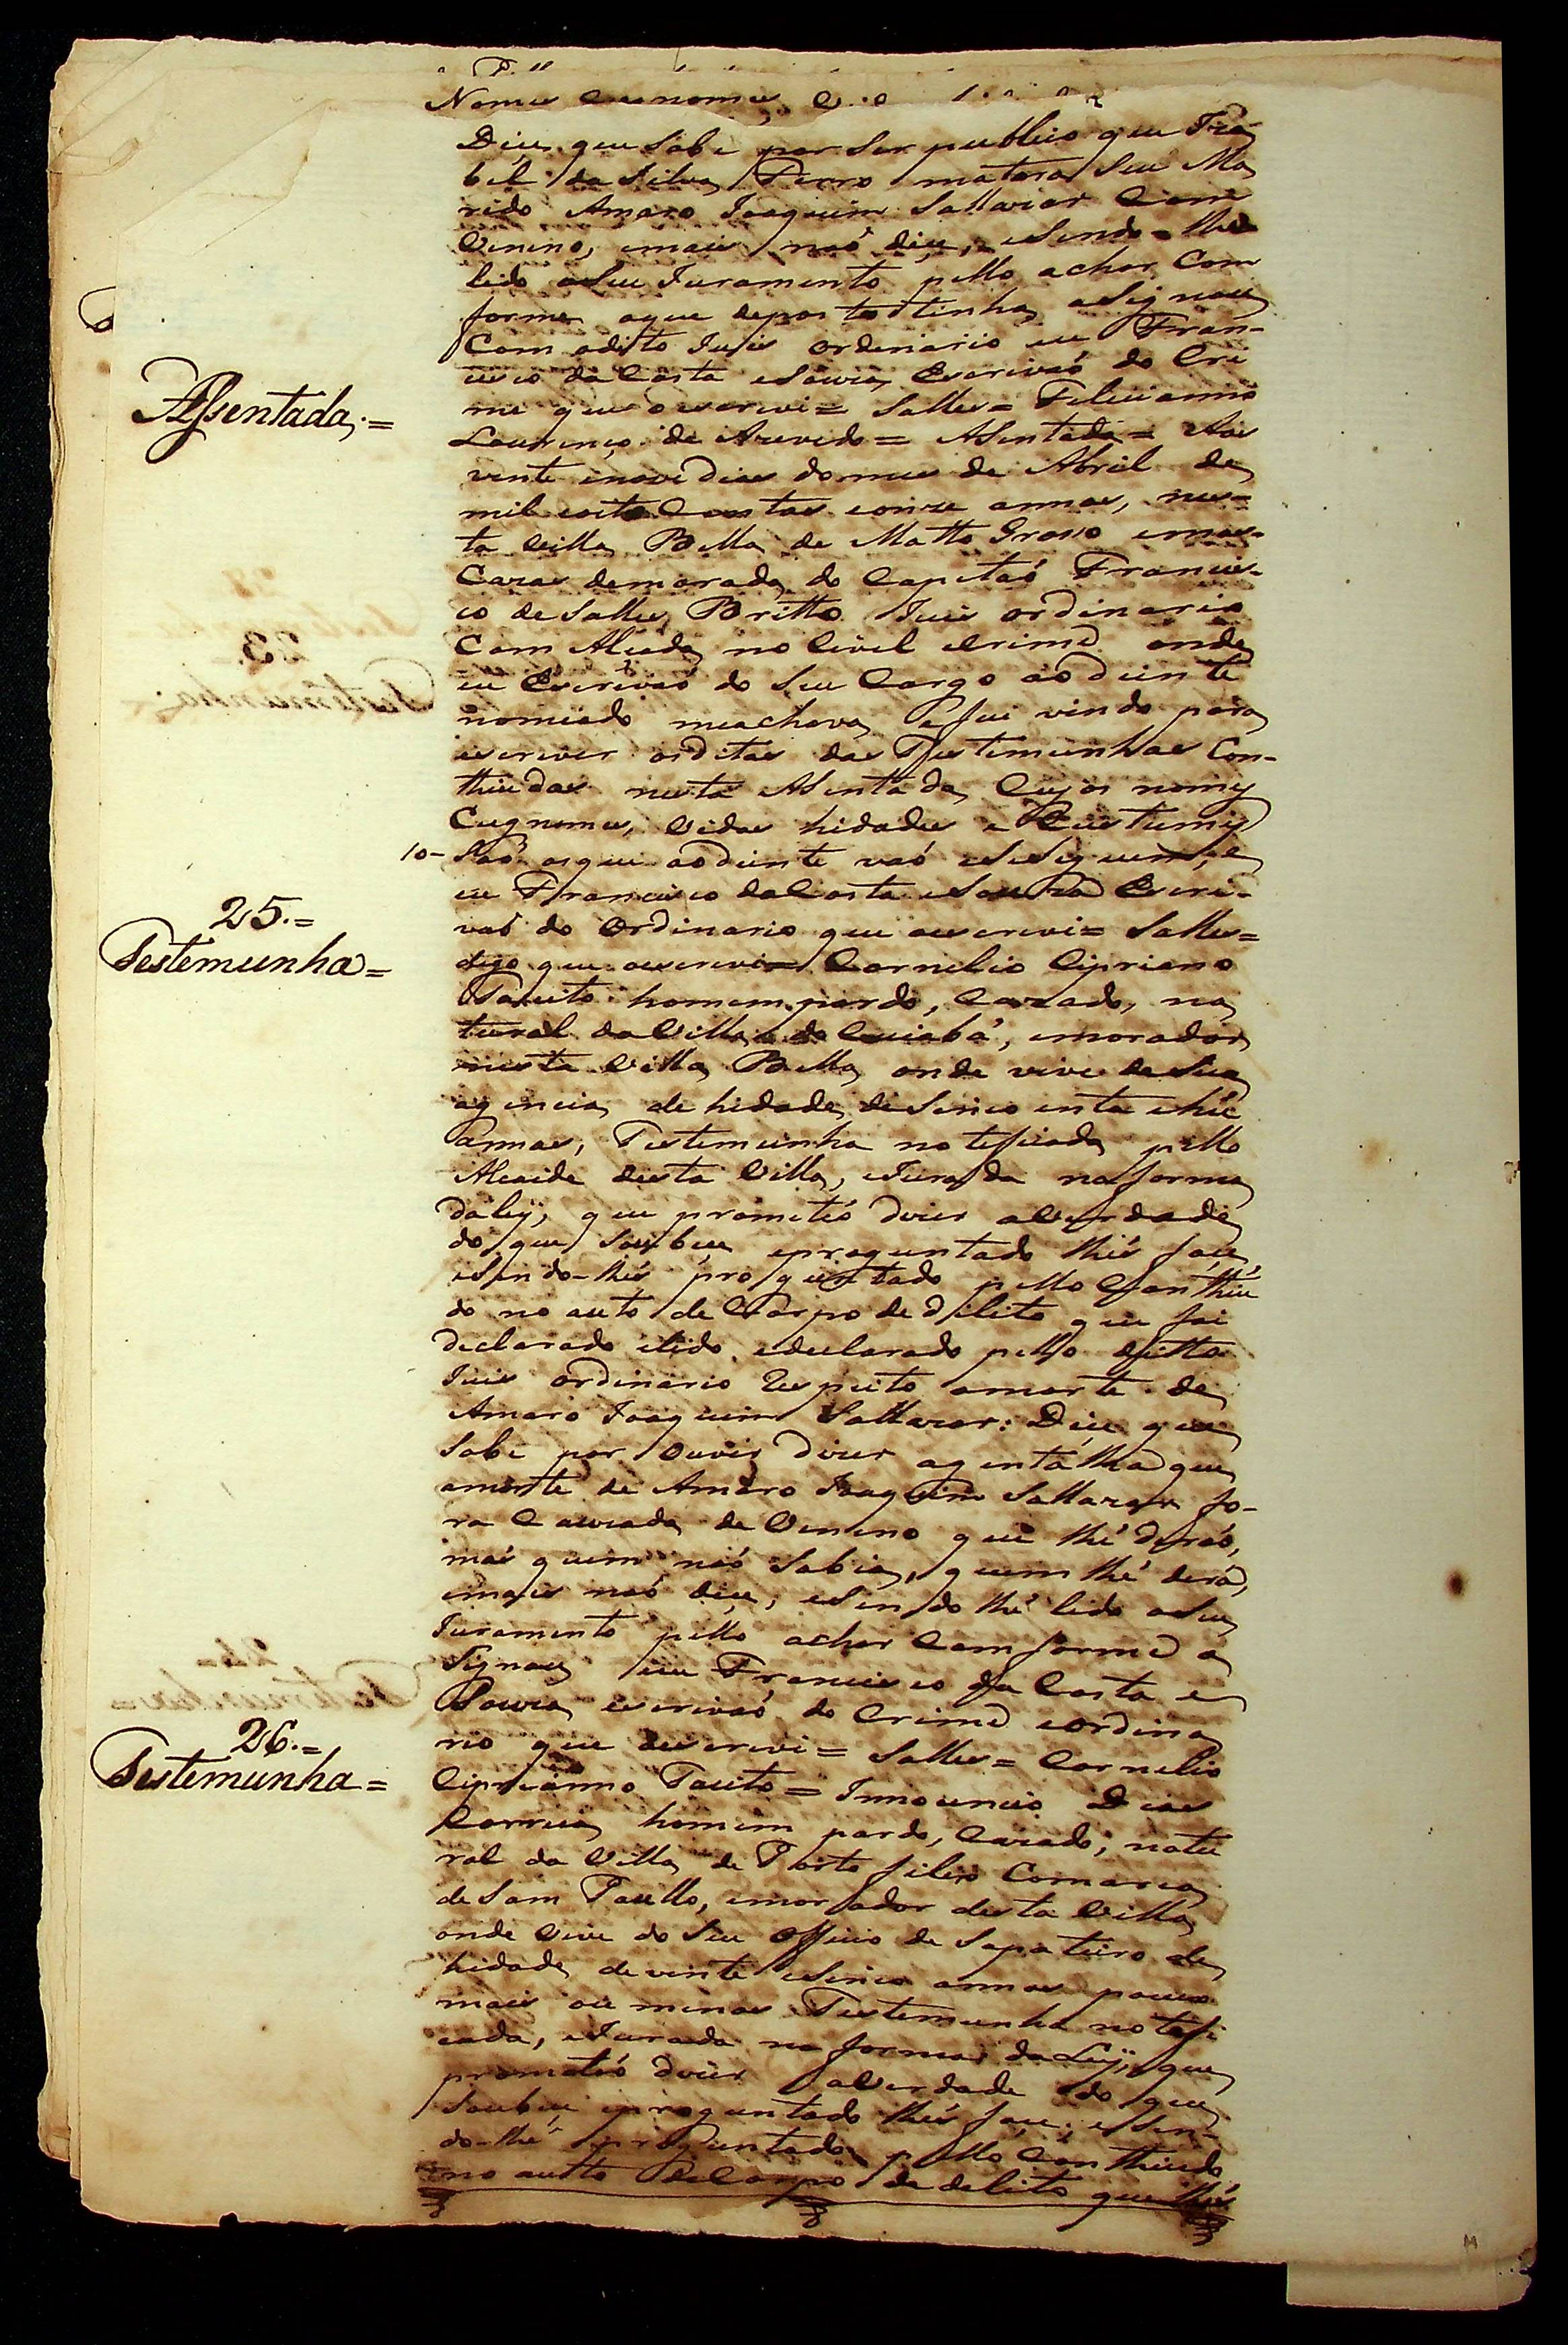 Disse que Sabe por Ser publico que Iza
bel da Silva Ferro matara Seu Ma
rido Amaro Joaquim Sallazar Com
Veneno, emais naó disse, eSendo=lhe
lido oSeu Juramento pello achar Com
forme aque deposto tinha aSignou
Com odito Juis ordinario eu Fran-
cisco da Costa eSouza Escrivaó do Cri
me que oescrevi= Salles= Felicianno
Lourenço de Azevedo= ASentada= Aos
Assentada.=
vinte enove dias domes de Abril de
mil eoito Centos eonze annos, nes=
ta Villa Bella de Matto Grosso emas=
Cazas demorada do Capitaó Francis-
co de Salles Britto Juis ordinario
Com Alçada no Civel eCrime onde
eu Escrivaó do Seu Cargo aodiente
nomiado meachava e fui vindo para
escrever osditos das Testemunhas Con-
thiudas nesta ASentada Cujos nomes
Cugnomes, Vidas hidades e Custumes
10- Saó osque aodiente vaó eSeSeguem, e
eu Francisco daCosta eSouza Escri-
vaó do Ordinario que oescrevi= Salles=
25.=
Testemunha=
digo que oescrevi= Cornelio Cipriano
Tacito homem pardo, Cazado, na
tural da Villa do Cuiabá, emorador
nesta Villa Bella onde vive de Sua
agencia de hidade de Sincoenta ehũ
annos, Testemunha noteficada pello
Alcaide desta Villa, eJurada naforma
daley, que prometeó dizer averdade
do que Soubese eproguntado lhés fose,
eSendo-lhés proguntado pello Conthiu
do no auto de Corpo de dilito que foi
declarado elido, edeclarado pello ditto
Juis ordinario Respeito amorte de
Amaro Joaquim Sallazar: Disse que
Sabe por ouvir dizer agentalhada que
amorte de Amaro Joaquim Sallazar fo-
ra Cauzada de Veneno que lhé deraó,
mas quem naó Sabia, quem lhé dera,
emais naó disse, eSendo lhé lido oSeu
Juramento pello achar Comforme a
Signou eu Francisco da Costa e
Souza escrivaó do Crime eordina
rio que oescrevi= Salles= Cornelio
26.=
Testemunha=
Ciprianno Tacito= Innocencio Dias
Correia homem pardo, Cazado; natu
ral da Villa de Porto feliz Comarca
de Sam Paullo, emorador desta Villa
onde Vive do Seu Officio de Sapateiro de
hidade de vinte eSinco annos pouco
mais ou menos Testemunha notefi
cada, eJurada na forma da Ley, que
prometeó dizer averdade do que
Soubese eproguntado lhés fose; eSen-
do-lhé proguntado pello Conthiudo
no autto deCorpo de delito que lhés